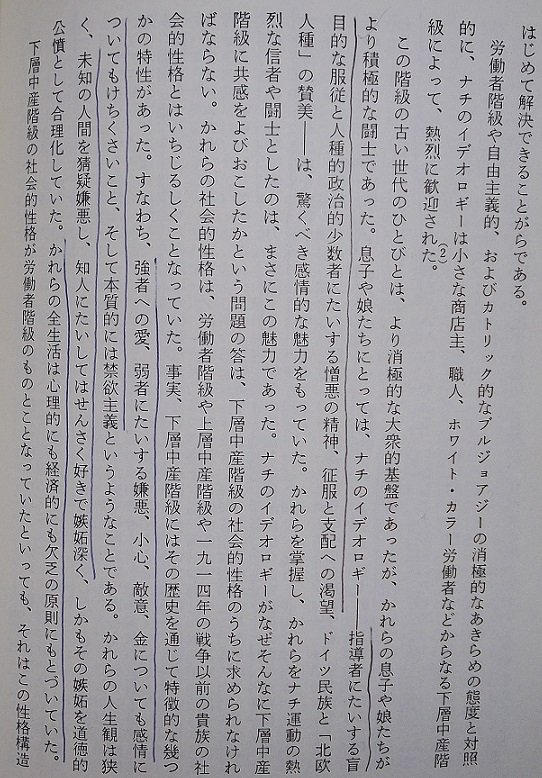 はじめて解決できることがらである。
労働者階級や自由主義的、およびカトリック的なブルジョアジーの消極的なあきらめの態度と対照
的に、ナチのイデオロギーは小さな商店主、職人、ホワイト・カラー労働者などからなる下層中産階
級によって、熱烈に歓迎された。(2)
この階級の古い世代のひとびとは、より消極的な大衆的基盤であったが、かれらの息子や娘たちが
より積極的な闘士であった。息子や娘たちにとっては、ナチのイデオロギー――指導者にたいする盲
目的な服従と人種的政治的少数者にたいする憎悪の精神、征服と支配への渇望、ドイツ民族と「北欧
人種」の賛美――は、驚くべき感情的な魅力をもっていた。かれらを掌握し、かれらをナチ運動の熱
烈な信者や闘士としたのは、まさにこの魅力であった。ナチのイデオロギーがなぜそんなに下層中産
階級に共感をよびおこしたかという問題の答は、下層中産階級の社会的性格のうちに求められなけれ
ばならない。かれらの社会的性格は、労働者階級や上層中産階級や一九一四年の戦争以前の貴族の社
会的性格とはいちじるしくことなっていた。事実、下層中産階級にはその歴史を通じて特徴的な幾つ
かの特性があった。すなわち、強者への愛、弱者にたいする嫌悪、小心、敵意、金についても感情に
ついてもけちくさいこと、そして本質的には禁欲主義というようなことである。かれらの人生観は狭
く、未知の人間を猜疑嫌悪し、知人にたいしてはせんさく好きで嫉妬深く、しかもその嫉妬を道徳的
公憤として合理化していた。かれらの全生活は心理的にも経済的にも欠乏の原則にもとづいていた。
下層中産階級の社会的性格が労働者階級のものとことなっていたといっても、それはこの性格構造